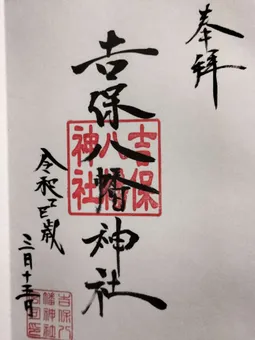 奉拝
吉保八幡神社
吉保
八幡
神社
令和乙巳歳
三月十五日
吉保八
幡神社